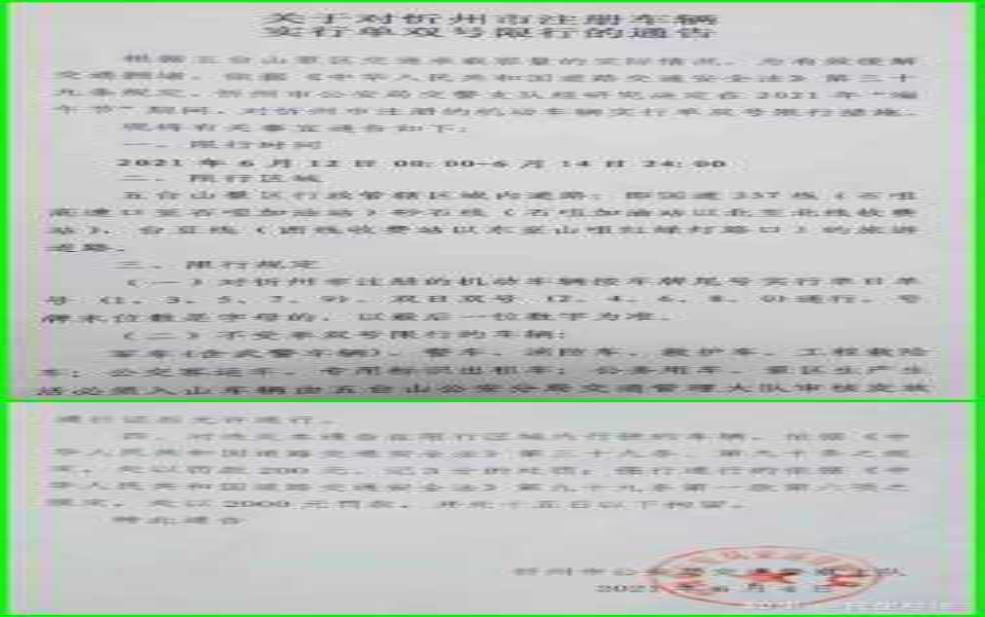 关于对忻州市注册车辆
实行单双号限行的通告
根据五台山景区交通承载容量的实际情况，为有效缓解
交通拥堵，依据《中华人民共和国道路交通安全法》第三十
九条规定，忻州市公安局交警支队经研究决定在2021年“端
午节”期间，对忻州市注册的机动车辆实行单双号限行措施。
现将有关事宜通告如下：
一、限行时间
2021年6月12日00:00-6月14日24:00
二、限行区域
五台山景区行政管辖区域内道路：即国道337线（石咀
高速口至石咀加油站）砂石线（石咀加油站以北至北线收费
站）、台豆线（西线收费站以东至山咀红绿灯路口）的旅游
道路。
三、限行规定
（一）对忻州市注册的机动车辆按车牌尾号实行单日单
号（1、3、5、7、9）、双日双号（2、4、6、8、0）通行。号
牌末位数是字母的，以最后一位数字为准。
（二）不受单双号限行的车辆：
军车(含武警车辆)、警车、消防车、救护车、工程救险
车；公交客运车、专用标识出租车；公务用车、景区生产生
活必须入山车辆由五台山公安分局交通管理大队审核发放
通行证后允许通行。
四、对违反本通告在限行区域内行驶的车辆，依据《中
华人民共和国道路交通安全法》第三十九条、第九十条之规
定，处以罚款200元，记3分的处罚；强行通行的依据《中
华人民共和国道路交通安全法》第九十九条第一款第六项之
规定，处以2000元罚款，并处十五日以下拘留。
特此通告
忻州市公安局交通警察支队
2021年6月4日